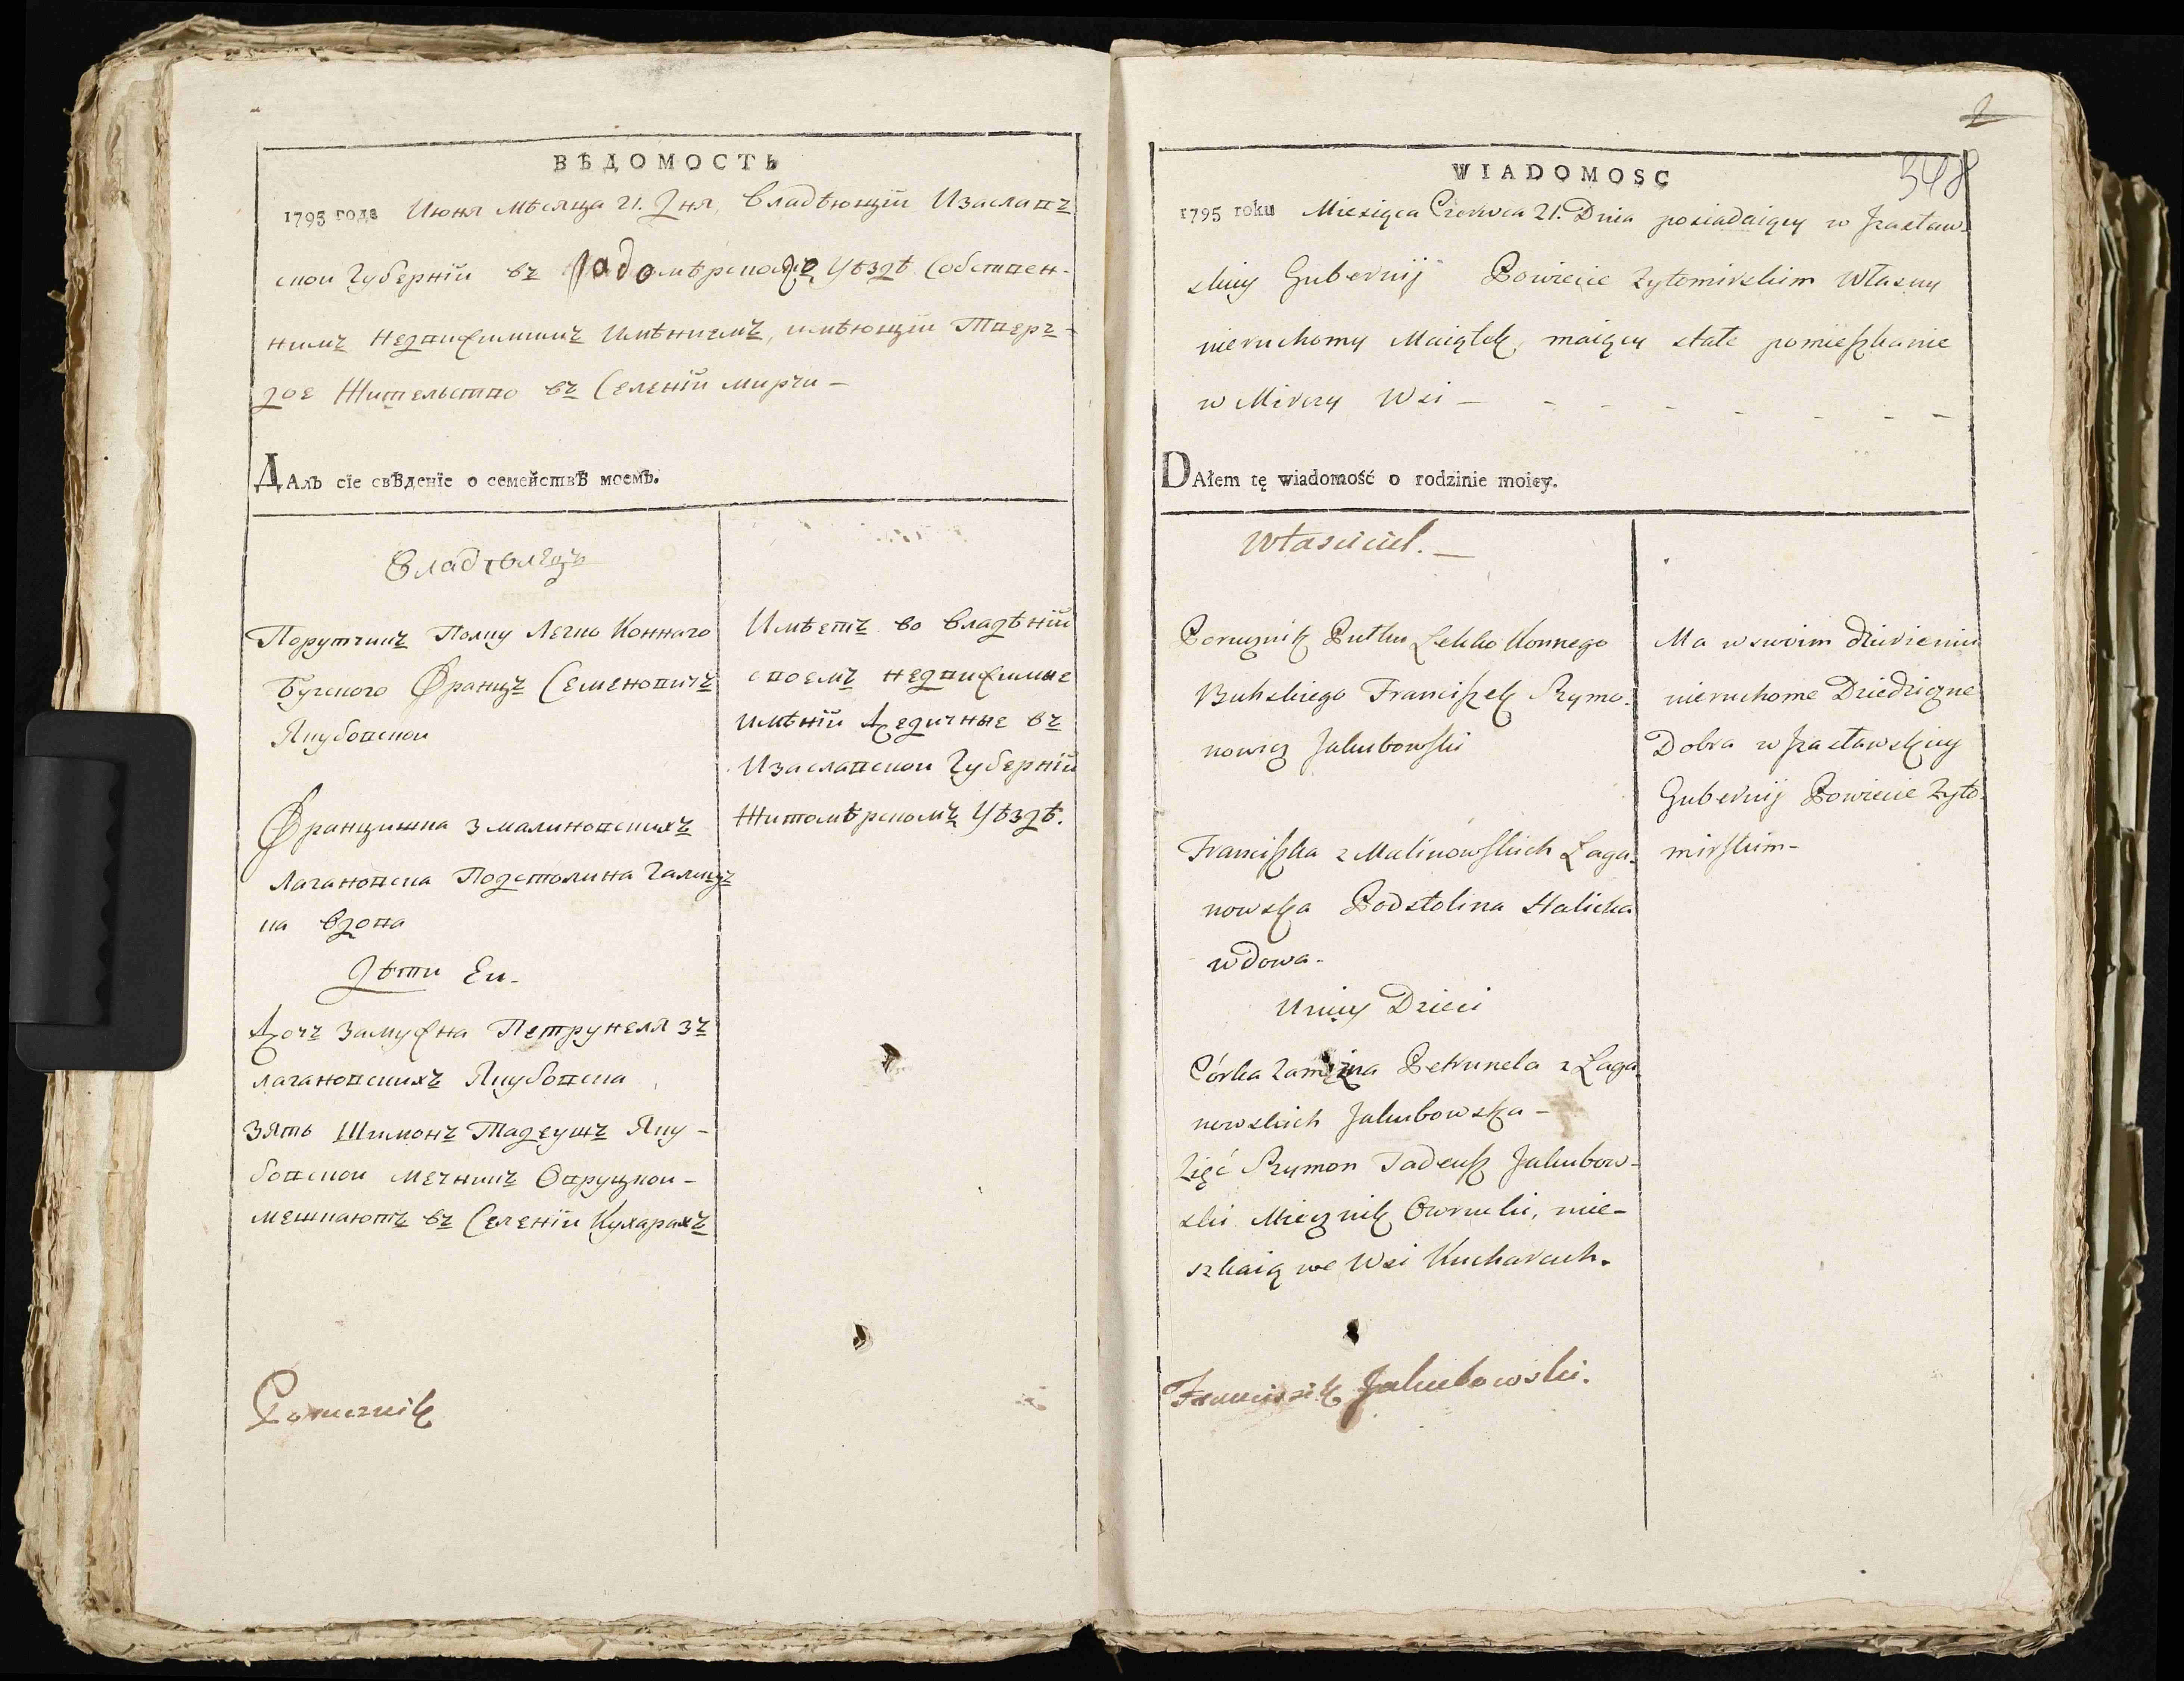 ВѢДОМОСТЬ
1795 года Июня Мѣсяца 21. Дня, Владѣющіи Изаславъ
скои Губерніи въ Радомѣрском Уѣздѣ Собствен-
нимъ Недвижимимъ Имѣниемъ, имѣющіи Тверъ-
дое Жительство въ Селеніи мирчи –
ДАлъ сїе свѢденїе о семействѢ моемЪ.
Владѣлецъ
Порутчикъ Полку Легко Конного
Бугского Францъ Семеновичъ
Якубовскои
Францишка З малиновскихъ
Лагановска Подстолина Галицъ
ка Вдова
Дѣти Еи -
Дочъ Замужна Петрунеля зъ
лагановскихъ Якубовска
Зять Шимонъ Тадеушъ Яку -
бовскои мечникъ Овруцкои -
мешкаютъ въ Селеніи Кухарахъ
Имѣетъ во владѣніи
своемъ недвижимые
имѣніи Дедичные въ
Изаславскои Губерніи
Житомѣрскомъ Уѣздѣ.
Porucznik
2
348
WIADOMOSC
1795 roku Miesiąca Czerwca 21. Dnia posiadaiący w Jzasław-
skiey Gubernij Powiecie Zytomirskim Własny
nieruchomy Maiątek, maiący stałe pomieszkanie
w Mirczy Wsi –
DAłem tę wiadomość o rodzinie moiey.
Własciciel. –
Porucznik Pułku Lekko Konnego
Buhskiego Franciszek Szymo-
nowicz Jakubowski
Franciszka z Malinowskich Łaga-
nowska Podstolina Halicka
wdowa -
U niey Dzieci
Córka Zamężna Petrunela z Łaga-
nowskich Jakubowska –
Zięć Szymon Tadeusz Jakubow-
ski Miecznik Owrucki, mie-
szkaią we Wsi Kucharach.
Ma w swoim dzierzeniu
nieruchome Dziedziczne
Dobra w Jzasławskiey
Gubernij Powiecie Zyto-
mirskim -
Franciszek Jakubowski.